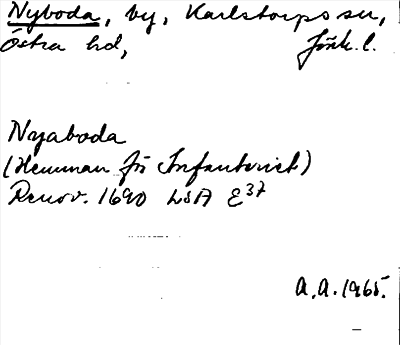 Nyboda, by, Karlstorps sn,
Östra hd, Jönk. l.
Nyaboda
(Hemman för Infanteriet)
Renov. 1690 LSA E³⁷
A.A. 1965.